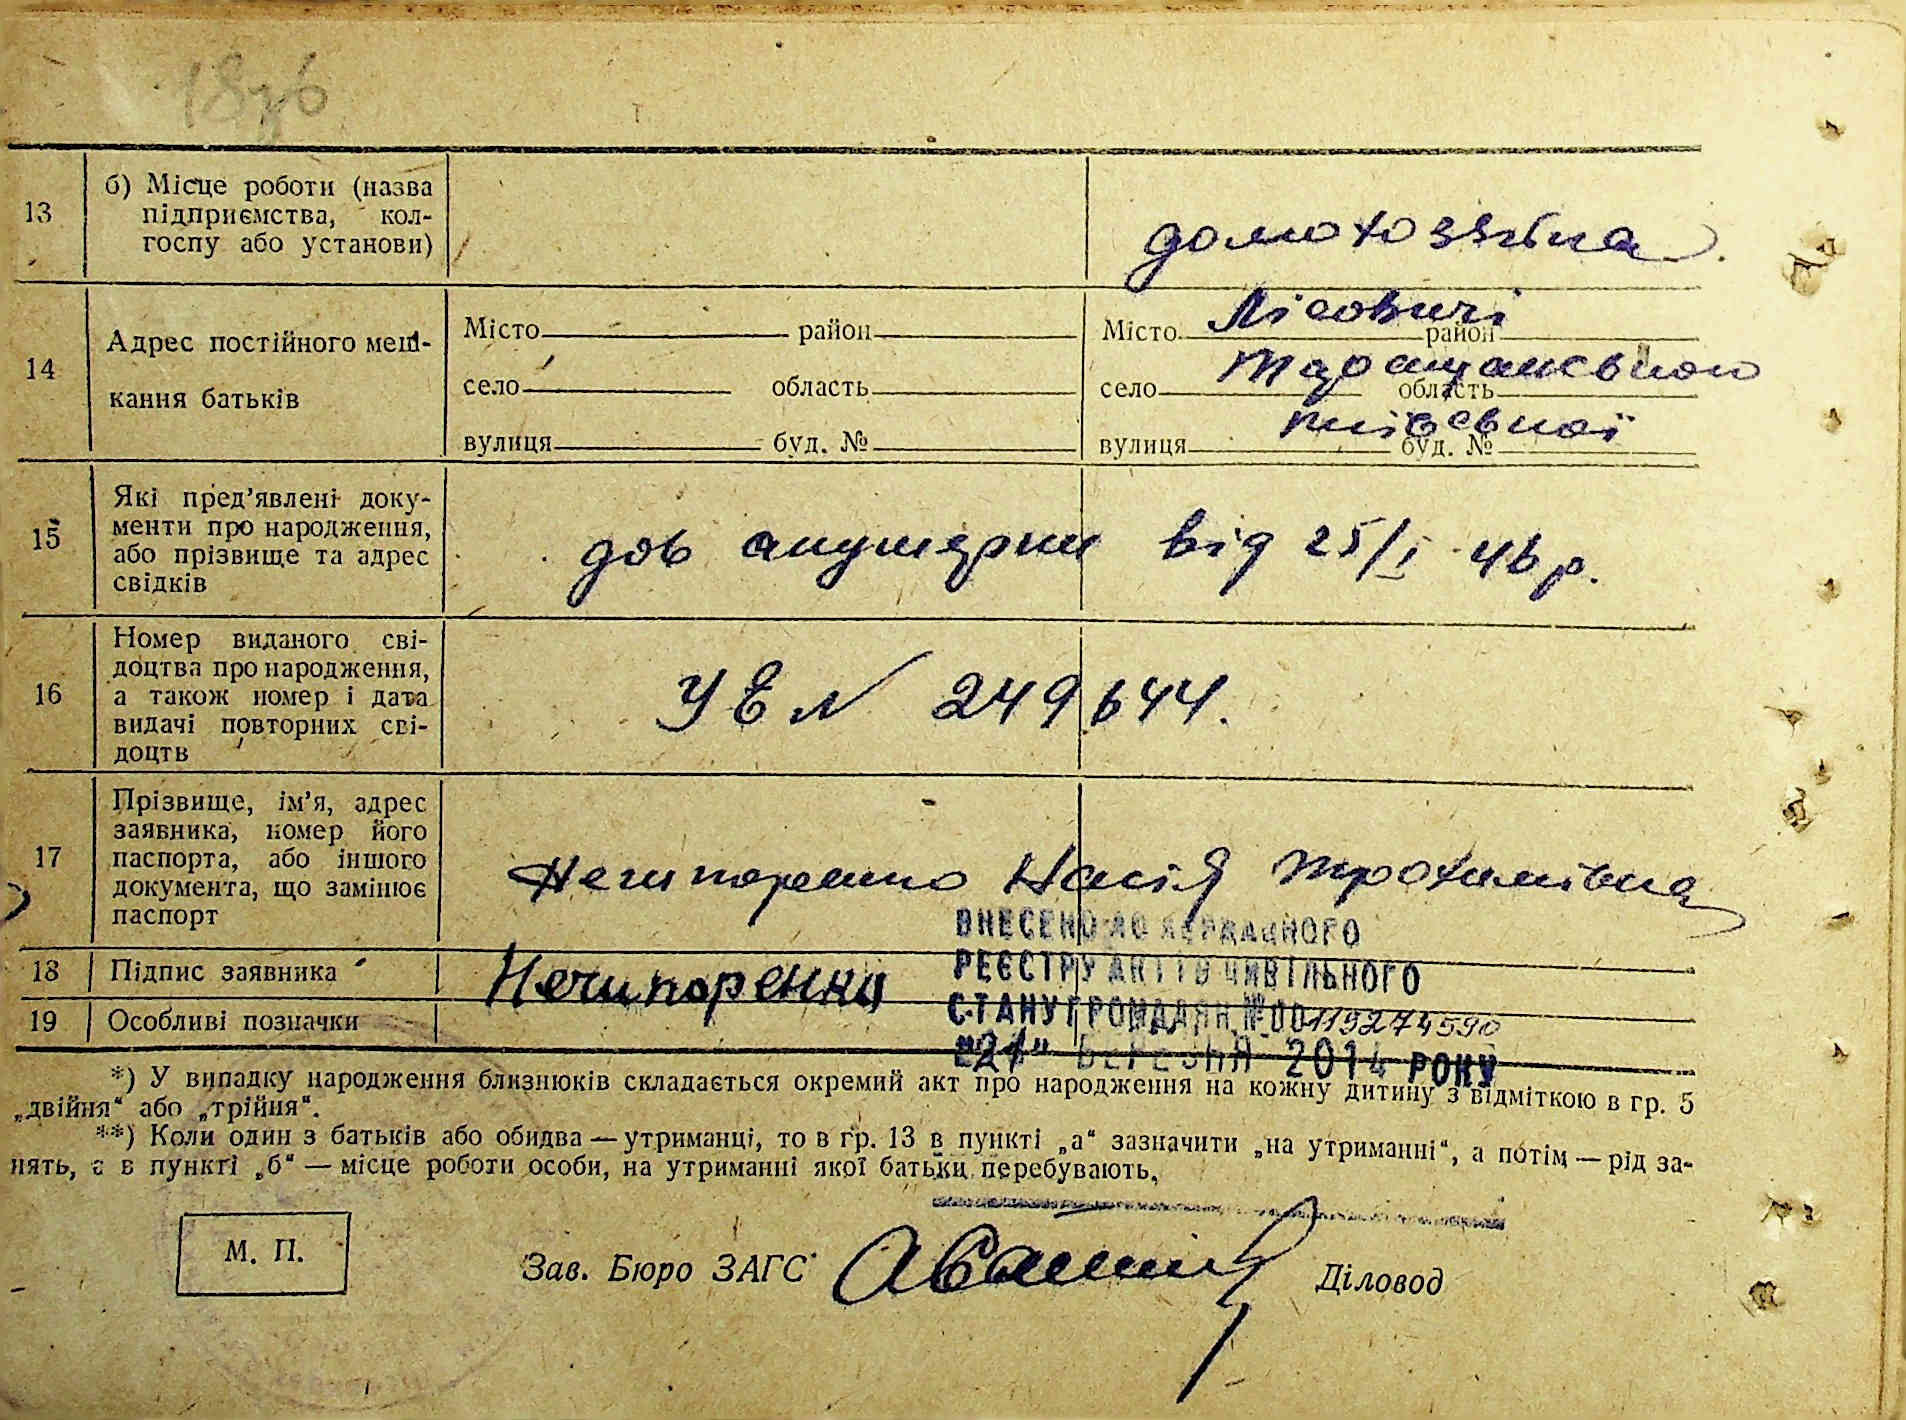 18зб
13
б) Місце роботи (назва
підприємства, кол-
госпу або установи)
домохазяйка.
14
Адрес постійного меш-
кання батьків
Місто район
село область
вулиця буд. №
Місто Лісовичі район
село Таращанської область
вулиця Київської буд. №
15
Які пред’явлені доку-
менти про народження,
або прізвище та адрес
свідків
дов акушерки від 25/I 46 р.
16
Номер виданого сві-
доцтва про народження,
а також номер і дата
видачі повторних сві-
доцтв
УЕ N 249644.
17
Прізвище, ім’я, адрес
заявника, номер його
паспорта, або іншого
документа, що замінює
паспорт
Нечипоренко Насія Трохимівна
18
Підпис заявника
Нечипоренко
19
Особливі позначки
ВНЕСЕНО ДО ДЕРЖАВНОГО
РЕЄСТРУ АКТІВ ЦИВІЛЬНОГО
СТАНУ ГРОМАДЯН № 00119274590
"21" БЕРЕЗНЯ 2014 РОКУ
*) У випадку народження близнюків складається окремий акт про народження на кожну дитину з відміткою в гр. 5
„двійня“ або „трійня“.
**) Коли один з батьків або обидва — утриманці, то в гр. 13 в пункті „а“ зазначити „на утриманні“, а потім — рід за-
нять, а в пункті „б“ — місце роботи особи, на утриманні якої батьки перебувають.
М. П.
Зав. Бюро ЗАГС
Діловод